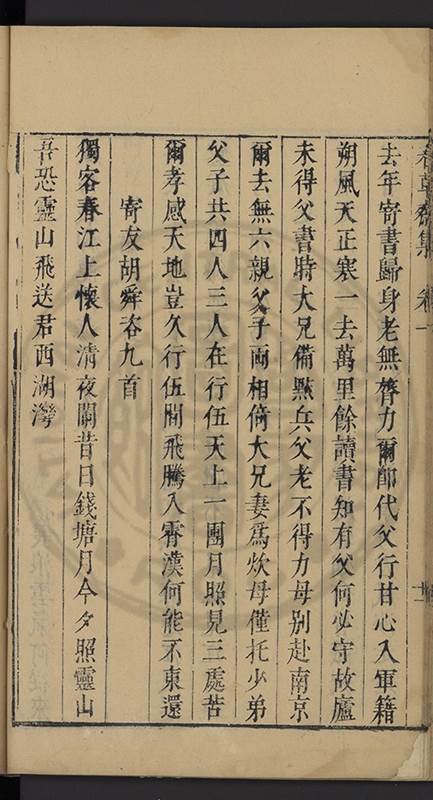 去年寄書歸身老無膂力爾卽代父行甘心入軍籍
朔風天正寒一去萬里餘讀書知有父何必守故廬
未得父書時大兄備點兵父老不得力母別赴南京
爾去無六親父子兩相倚大兄妻爲炊母僅托少弟
父子共四人三人在行伍天上一團月照見三處苦
爾孝感天地豈久行伍間飛騰入霄漢何能不東還
寄友胡舜容九首
獨客春江上懷人清夜闌昔日錢塘月今夕照靈山
吾恐靈山飛送君西湖灣